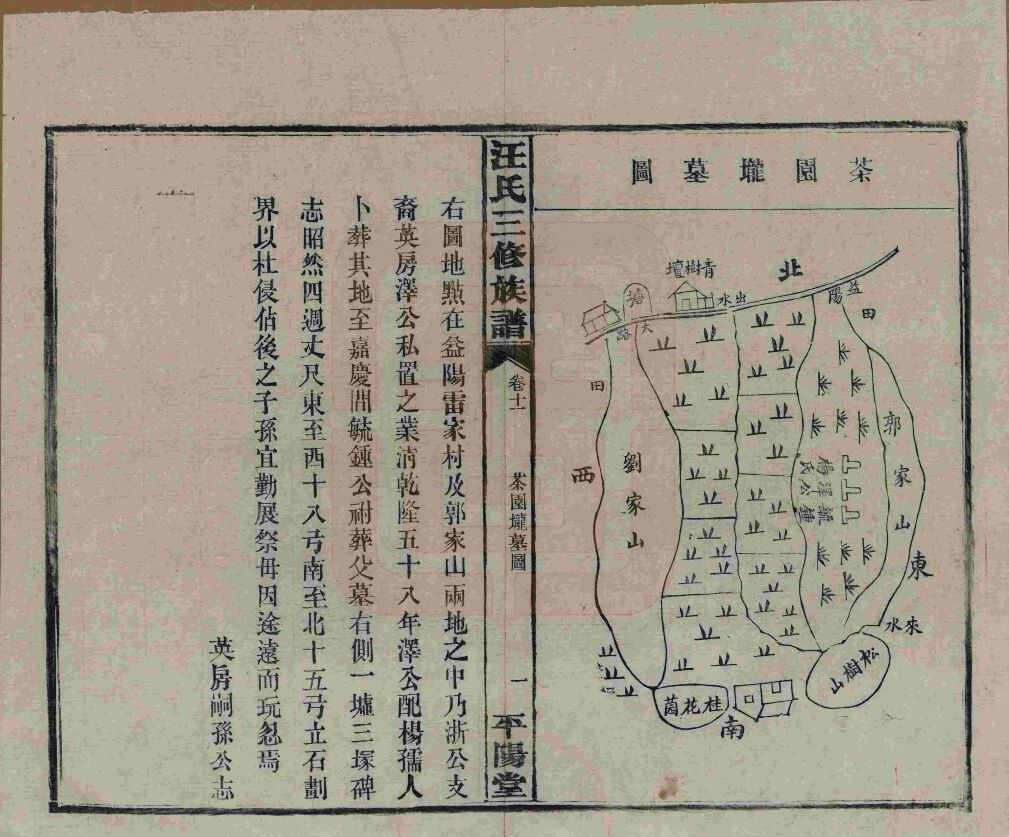 茶園壠墓圖
北
青樹壇
塘
大路
出水
益陽
田
田
郭家山
劉家山
西
毓鍾
澤公
楊氏
東
來水
松樹山
桂花茵
南
汪氏三修族譜
卷十一
茶園壠墓圖
一
平陽堂
右圖地點在益陽雷家村及郭家山兩地之中乃浙公支
裔英房澤公私置之業清乾隆五十八年澤公配楊孺人
卜葬其地至嘉慶間毓鍾公祔葬父墓右側一墟三塚碑
志昭然四週丈尺東至西十八弓南至北十五弓立石劃
界以杜侵佔後之子孫宜勤展祭毋因途遠而玩忽焉
英房嗣孫公志